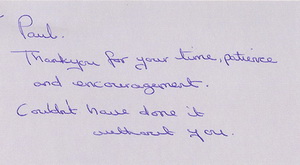 Paul.
Thankyou for your time, patience
and encouragement.
Couldnt have done it
without you.